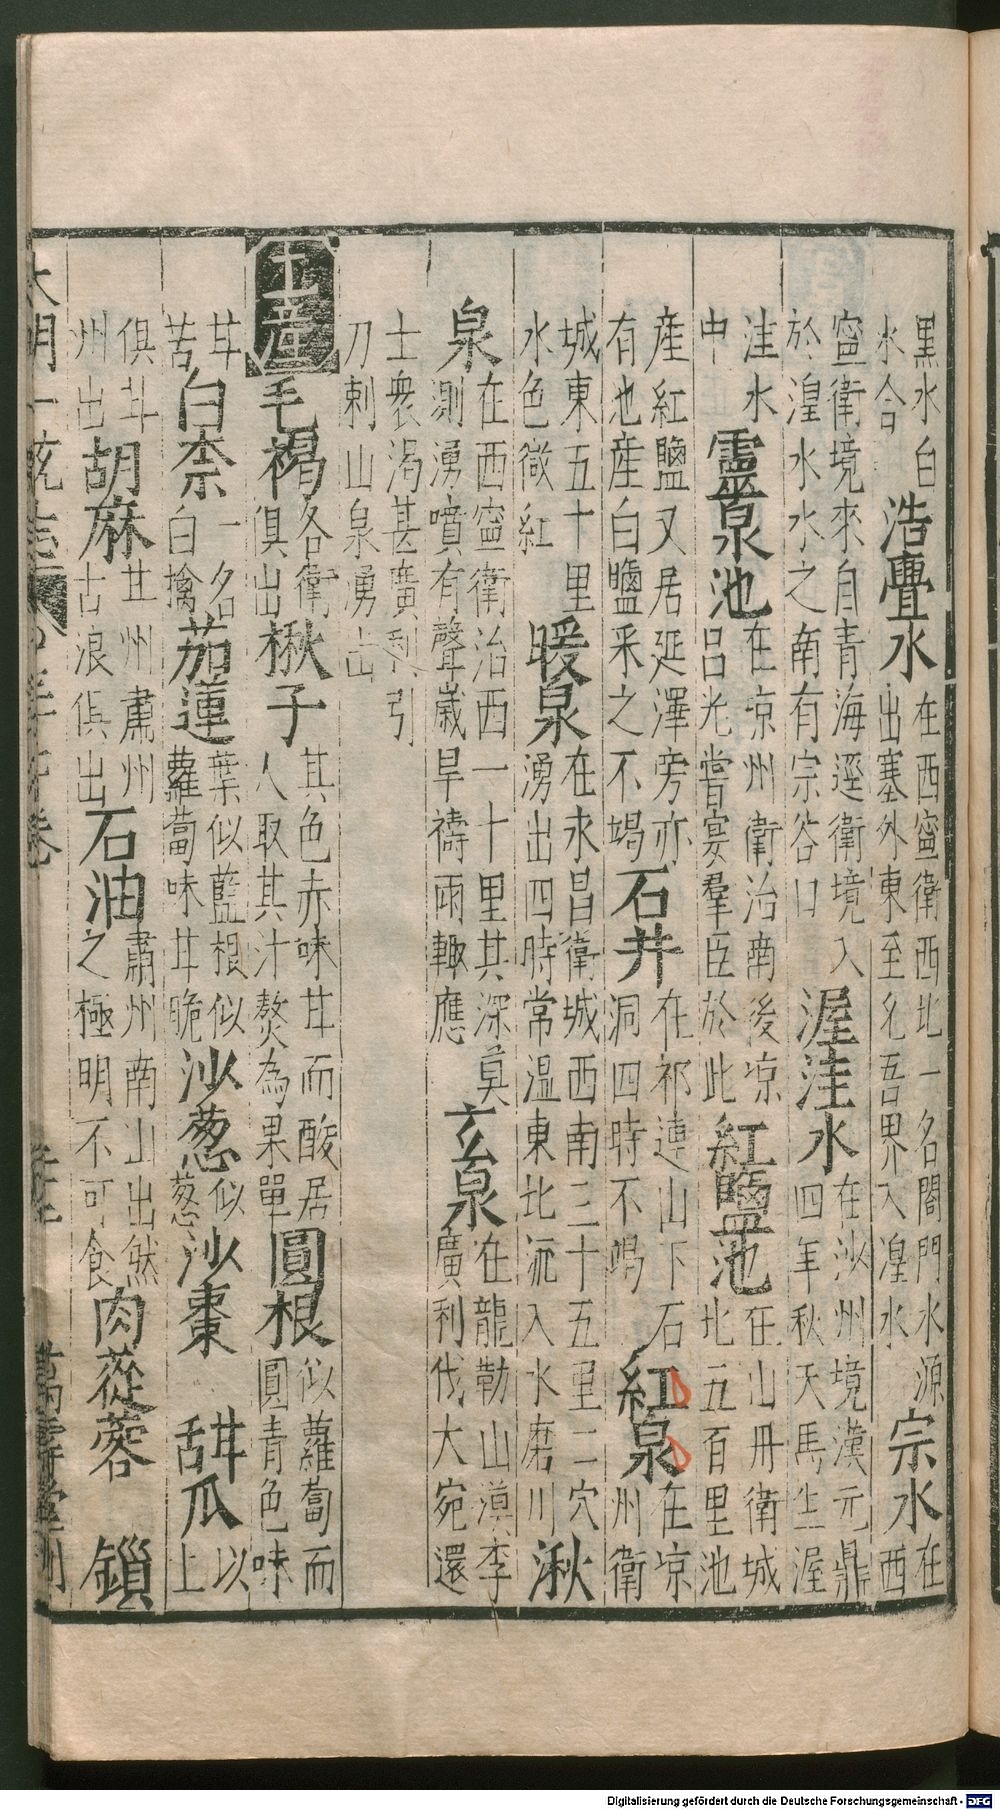 黑水白水合浩亹水在西寧衛西北一名閤門水源出塞外東至允吾界入湟水宗水在西
寧衛境來自青海逕衛境入於湟水水之南有宗谷口渥洼水在沙州境漢元鼎四年秋天馬生渥
洼水中靈泉池在凉州衛治南後凉呂光嘗宴羣臣於此紅鹽池在山丹衛城北五百里池
產紅鹽又居延澤旁亦有池產白鹽采之不竭石井在祁連山下石洞四時不竭紅泉在凉州衛
城東五十里水色微紅暖泉在永昌衛城西南三十五里二穴湧出四時常温東北流入水磨川湫
泉在西寧衛治西一十里其深莫測湧噴有聲歲旱禱雨輙應玄泉在龍勒山漠李廣利伐大宛還
士衆渴甚廣利引刀刺山泉湧出
土產毛褐各衛俱出楸子其色赤味甘而酸居人取其汁熬為果單圓根似蘿蔔而圓青色味
甘苦白柰一名白檎茄蓮葉似藍根似蘿蔔味甘脆沙葱似葱沙棗甜瓜以上
俱甘州出胡麻甘州肅州古浪俱出石油肅州南山出然之極明不可食肉蓯蓉鎖
大明一統志三十七卷萬壽堂刋
Digitalisierung gefördert durch die Deutsche Forschungsgemeinschaft - DFG